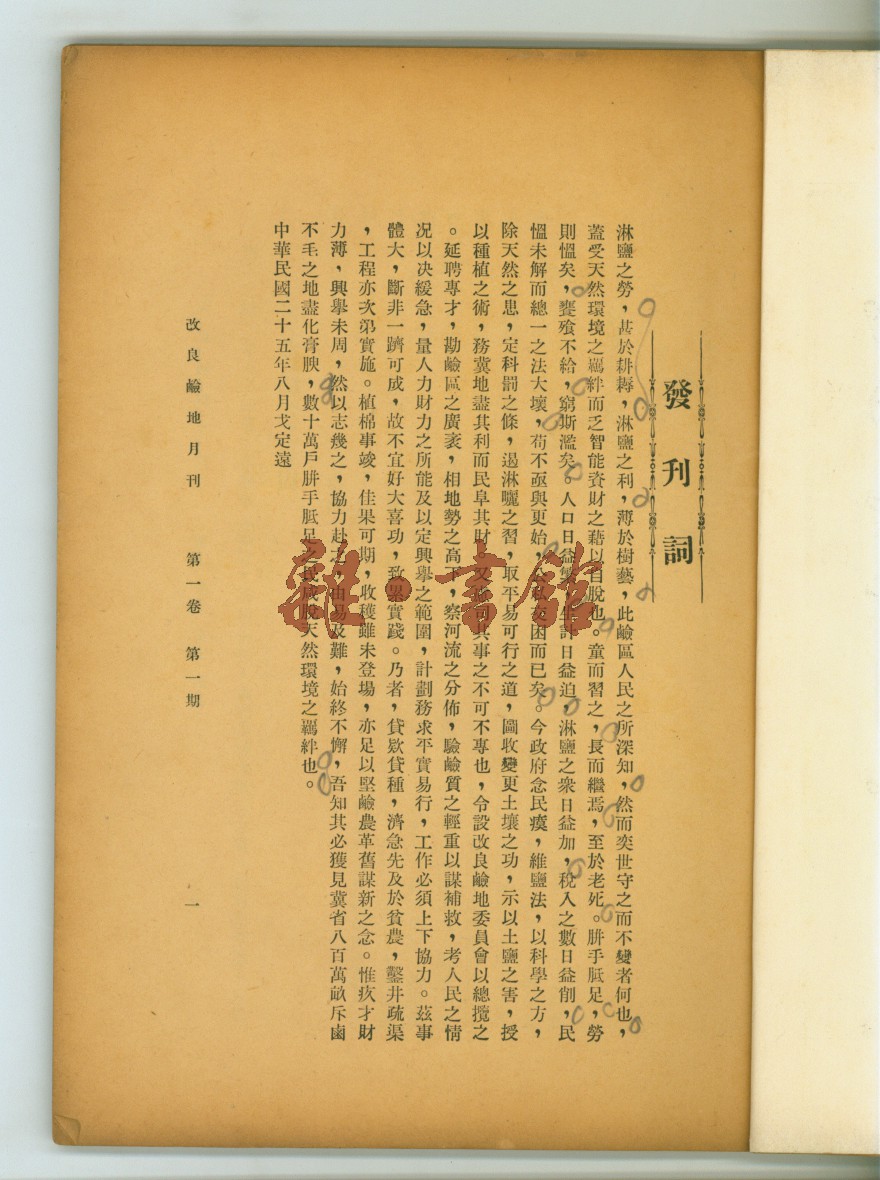 發刊詞
淋鹽之勞，甚於耕耨，淋鹽之利，薄於樹藝，此鹼區人民之所深知，然而奕世守之而不變者何也，
蓋受天然環境之羈絆而乏智能資財之藉以自脫也。童而習之，長而繼焉，至於老死。胼手胝足，勞
則慍矣，饔飱不給，窮斯濫矣。人口日益繁，生計日益迫，淋鹽之衆日益加，稅入之數日益削，民
慍未解而總一之法大壞，苟不亟與更始，公私交困而已矣。今政府念民瘼，維鹽法，以科學之方，
除天然之患，定科罰之條，遏淋曬之習，取平易可行之道，圖收變更土壤之功，示以土鹽之害，授
以種植之術，務冀地盡其利而民阜其財，又 其事之不可不專也，令設改良鹼地委員會以總攬之
。延聘專才，勘鹼區之廣袤，相地勢之高下，察河流之分佈，驗鹼質之輕重以謀補救，考人民之情
况以决緩急，量人力財力之所能及以定興舉之範圍，計劃務求平實易行，工作必須上下協力。茲事
體大，斷非一蹴可成，故不宜好大喜功，致 實踐。乃者，貸欵貸種，濟急先及於貧農，鑿井疏渠
，工程亦次第實施。植棉事竣，佳果可期，收穫雖未登場，亦足以堅鹼農革舊謀新之念。惟疚才財
力薄，興舉未周，然以志幾之，協力赴之，由易及難，始終不懈，吾知其必獲見冀省八百萬畝斥鹵
不毛之地盡化膏腴，數十萬戶胼手胝足之民咸脫天然環境之羈絆也。
中華民國二十五年八月戈定遠
改良鹼地月刊 第一卷 第一期 一
雜·書館